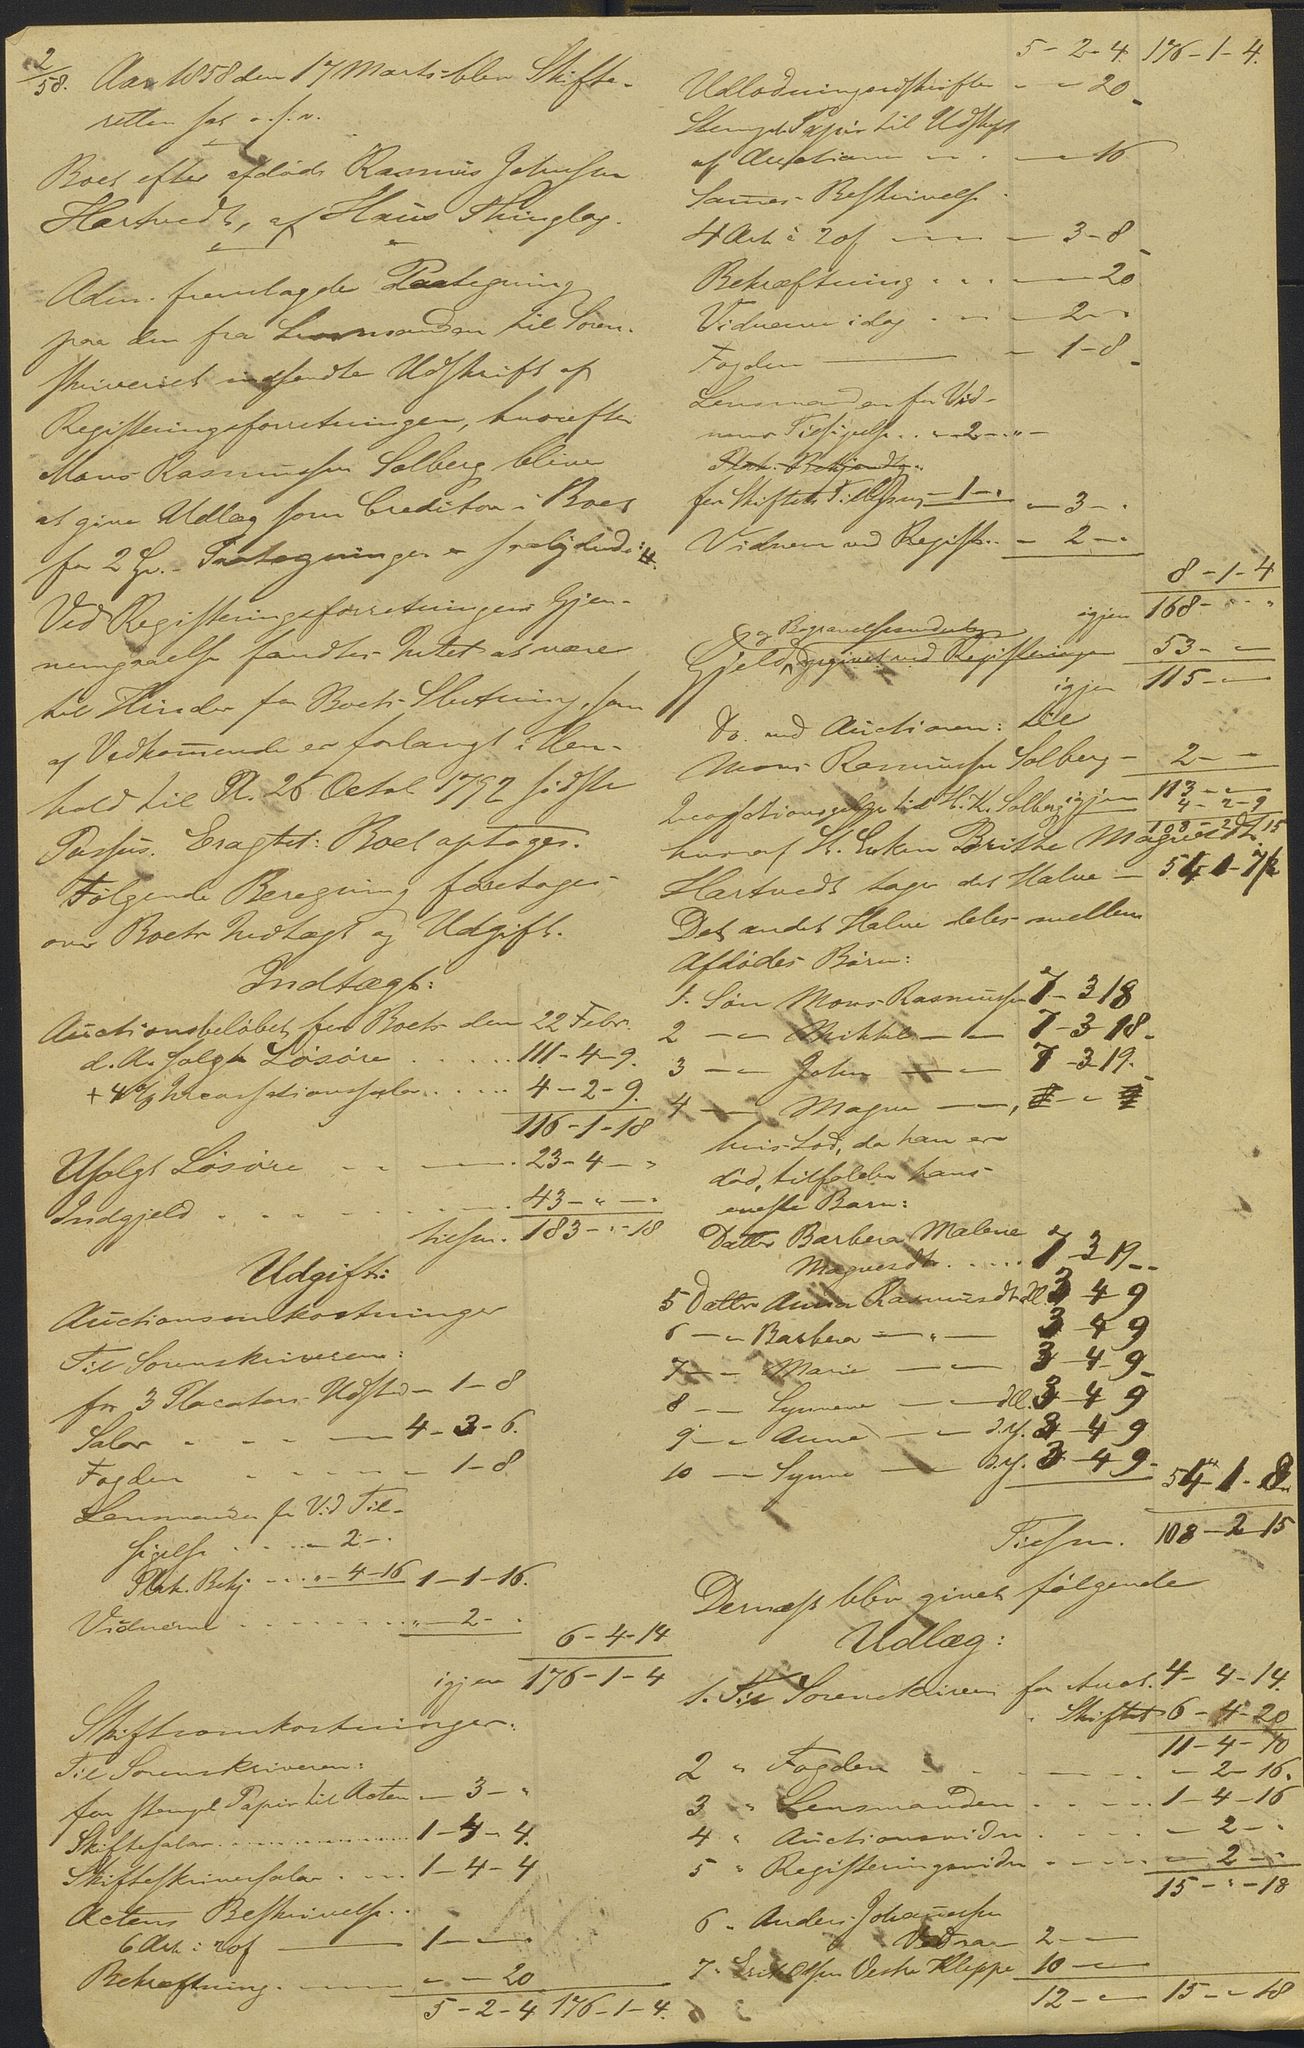 2/58. Aar 1858 den 17 Marts blev Skifte-
retten sat o.s.v.
Boet efter afdøde Rasmus Johnsen
Hartvedt, af Haus Thinglag.
Adm. fremlagde Paategning
paa den fra Lensmanden til Soren-
skriveriet indsendte Udskrift af
Registeringsforretningen, hvorefter
Mons Rasmussen Solberg bliver
at give Udlæg som Creditor i Boet
for 2 Paategningen er saalydende:
Ved Registeringsforretningens Gjen-
nemgaaelse fandtes Intet at være
til Hinder for Boets Slutning, som
af Vedkommende er forlangt i Hen-
hold til Pl. 26 Octob. 1792 sidste
Passus. Eragtet: Boet optages.
Følgende Beregning foretoges
over Boets Indtægt og Udgift.
Indtægt:
Auctionsbeløbet for Boets den 22 Febr.
d. A. solgte Løsøre . . . . 111-4-9.
+ 4% Incassationssalar . . . 4-2-9.
116-1-18
Usolgt Løsøre . . 23-4-"
Indgjeld . . . . 43-"-"
tilsm. 183-"-18
Udgift:
Auctionsomkostninger
Til Sorenskriveren:
for 3 Placaters Udsted - 1-8
Salar . . . . 4-3-6.
Fogden . . . . 1-8
Lensmanden for Vid Til-
sigelse . . . - 2-.
Plak. Bekj . . . "-4-16 1-1-16.
Vidnerne . . . . "-2-.
6-4-14
igjen 176-1-4
Skifteomkostninger.
Til Sorenskriveren:
for stempl. Papir til Acten - 3-"
Skiftesalar . . . . 1-4-4.
Skifteskriversalar . . . 1-4-4
Actens Beskrivelse . .
6 Ark à 20 ß - 1-"-
Bekræftning. - - - 20
5-2-4 176-1-4.
5-2-4. 176-1-4.
Udlodningsudskrifter - - 20
Stempl. Papir til Udskrift
af Auctionen - - . - - 16
Sammes Beskrivelse
4 Ark à 20 ß - - 3-8
Bekræftning . . . - - 20
Vidnerne idag . - - 2-"
Fogden - - 1-8
Lensmanden for Vid-
ners Tilsigelse . . "-2-"-
Plak. Bekjendtg.
for Skiftets Tillysning - 1-. - 3-.
Vidnerne ved Registr. . - 2-.
8-1-4
igjen 168-"-"
og Begravelsesudredn
Gjeld, opgivet ved Registeringen 53-"-
igjen 115-"-
Do. ved Auctionen: til
Mons Rasmussen Solberg - 2-"-
igjen 113-"-
Incassationssalar til K. K. Solberg 4-2-9
108-2-15
hvoraf St. Enken Brithe Magnesdt.
Hartvedt tager det Halve - 54-1-7½
Det andet Halve deles mellem
Afdødes Børn:
1. Søn Mons Rasmussen 7-3 18
2 - " Mikkel - " - 7-3-18.
3 - " John - " - 7-3 19.
4 - " Magne - " -,
hvis Lod, da han er
død, tilfalder hans
eneste Barn:
Datter Barbera Malene
Magnesdt. . . . . 7-3 19 - -
5 Datter Anna Rasmusdt. æl. 3 4 9
6 - " Barbera - " - 3-4 9
7 - " Marie - " - 3-4-9
8 - " Synneve - " æll. 3-4 9
9 - " Anna - " d.y. 3-4 9
10 - " Synne - " d.y. 3-4 9-
54-1-8
Tilsm. 108-2-15
Dernæst blev givet følgende
Udlæg:
1. Til Sorenskriveren for Auct. 4-4-14.
" Skiftet 6-4-20
11-4-10
2 " Fogden . . . . - 2-16.
3 " Lensmanden . . . . 1-4-16
4 " Auctionsvidner . . . - 2-.
5 " Registeringsvidner . . . - 2-"
15-"-18
6 " Anders Johannessen
2-"-
7 " Erik Olsen Vestre Kleppe 10-"-
12-"- 15-"-18